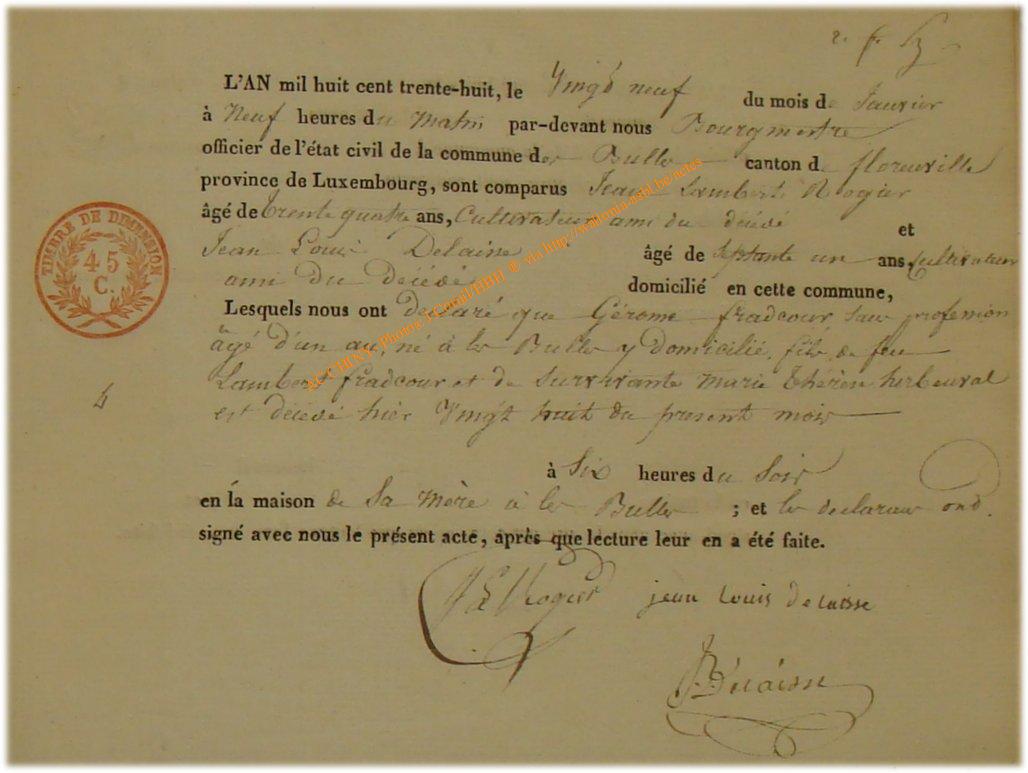 L'AN mil huit cent trente-huit, le Vingt neuf du mois de Janvier
à Neuf heures du Matin par-devant nous Bourgmestre
officier de l'état civil de la commune des Bulles canton de florenville
province de Luxembourg, sont comparus Jean Lambert Rogier
âgé de trente quatre ans, Cultivateur ami du décédé
et
Jean Louis Delaisse âgé de Septante un ans Cultivateur
ami du décédé domicilié en cette commune,
Lesquels nous ont declaré que Gérome fradcour sans profession
âgé d'un an, né à les Bulles y domicilié, fils de feu
Lambert fradcour et de Survivante Marie thérèse herbeuval
est décédé hier Vingt huit du present mois
à Six heures du Soir
en la maison de Sa Mère à les Bulles ; et les declarans ond
signé avec nous le présent acte, après que lecture leur en a été faite.
JL Rogier jean Louis delaisse
TIMBRE DE DIMENSION.
45
C.
4
Photos Canal HBH @ via http://wallonia-asbl.be/actes